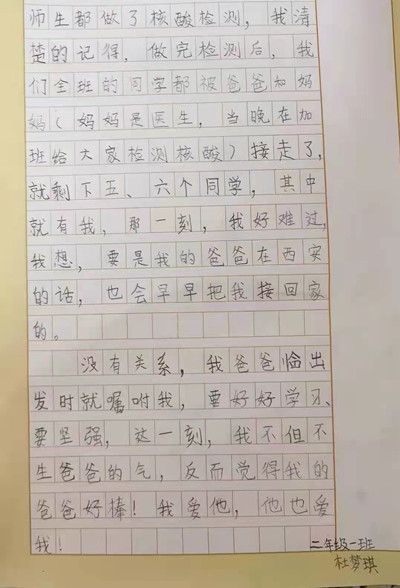 师生都做了核酸检测，我清
楚的记得，做完检测后，我
们全班的同学都被爸爸和妈
妈（妈妈是医生，当晚在加
班给大家检测核酸）接走了，
就剩下五、六个同学，其中
就有我，那一刻，我好难过，
我想，要是我的爸爸在西安
的话，也会早早把我接回家
的。
没有关系，我爸爸临出
发时就嘱咐我，要好好学习、
要坚强，这一刻，我不但不
生爸爸的气，反而觉得我的
爸爸好棒！我爱他，他也爱
我！
二年级一班
杜梦琪